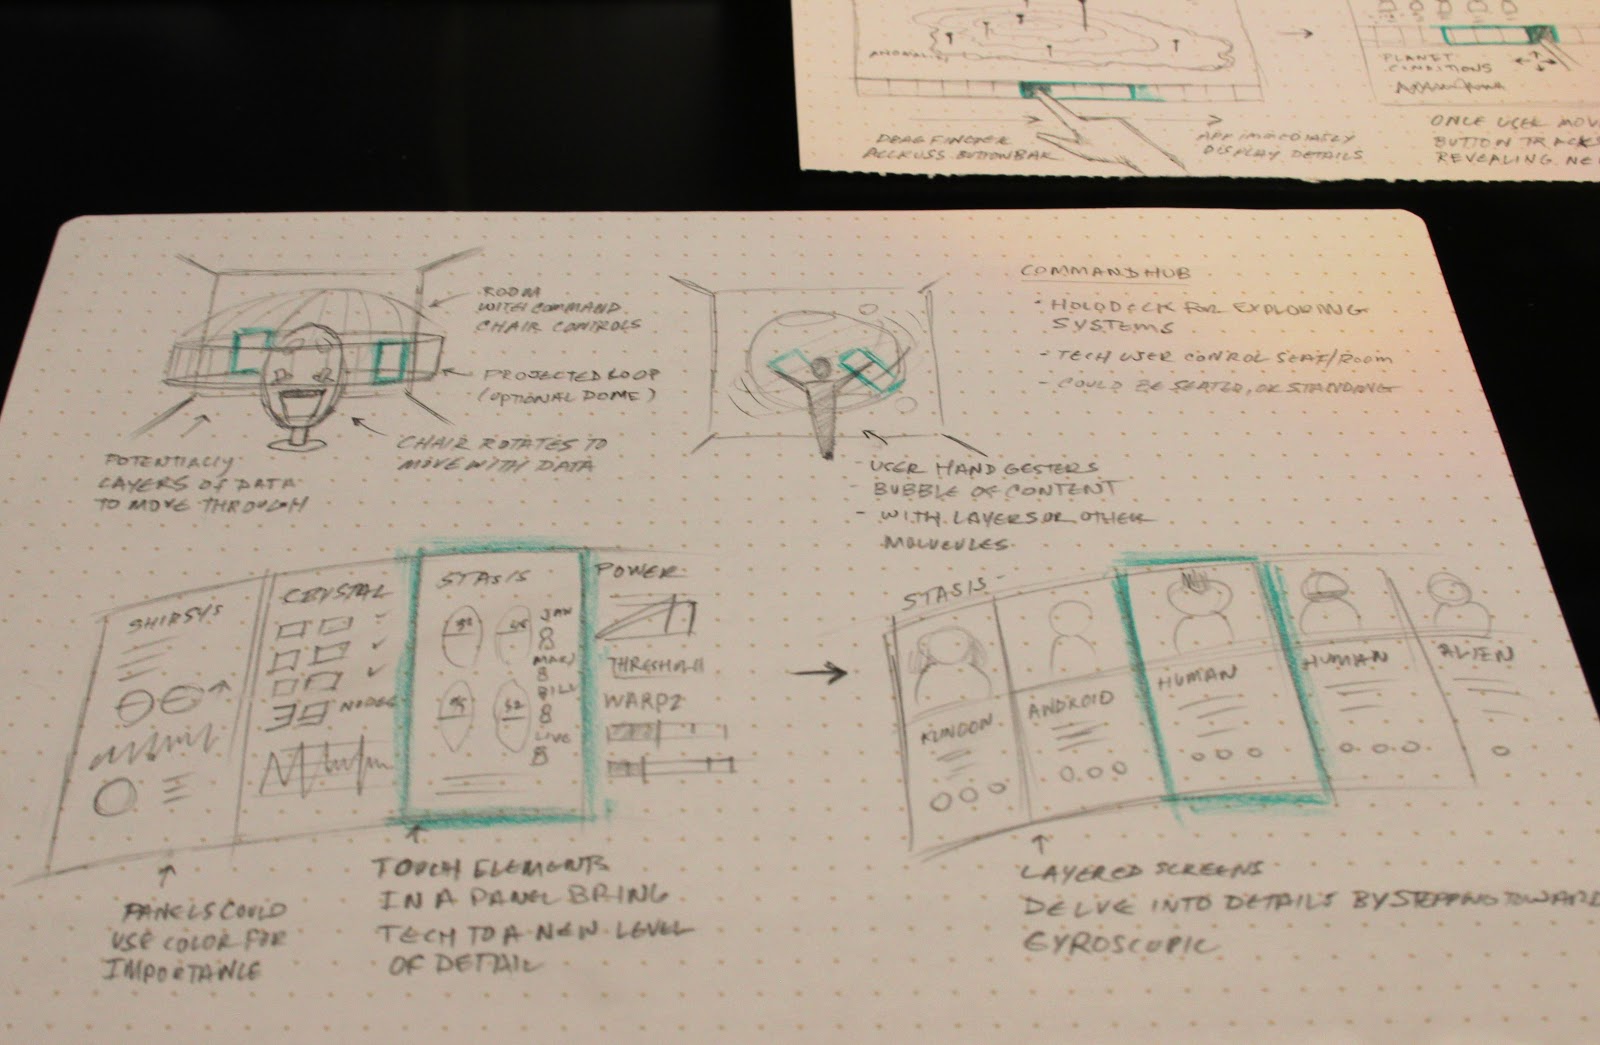 DRAG FINGER
ACCROSS BUTTON BAR
APP IMMEDIATELY
DISPLAY DETAILS
PLANET
CONDITIONS
ONCE USER MOV
BUTTON TRACKS
REVEALING NE
ROOM
WITH COMMAND
CHAIR CONTROLS
PROJECTED LOOP
(OPTIONAL DOME)
CHAIR ROTATES TO
MOVE WITH DATA
POTENTIALLY
LAYERS OF DATA
TO MOVE THROUGH
COMMAND HUB
- HOLODECK FOR EXPLORING
SYSTEMS
- TECH USER CONTROL SEAT/ROOM
- COULD BE SEATED, OR STANDING
- USER HAND GESTERS
BUBBLE OF CONTENT
- WITH LAYERS OR OTHER
MOLVEULES
SHIPSYS
CRYSTAL
NODES
STASIS
52
JAN
MARJ
BILL
LIVE
52
POWER
THRESHOLD
WARP2
PANELS COULD
USE COLOR FOR
IMPORTANCE
TOUCH ELEMENTS
IN A PANEL BRING
TECH TO A NEW LEVEL
OF DETAIL
STASIS
ANDROID
HUMAN
HUMAN
ALIEN
LAYERED SCREENS
DELVE INTO DETAILS BY STEPPING TOWARD
GYROSCOPIC